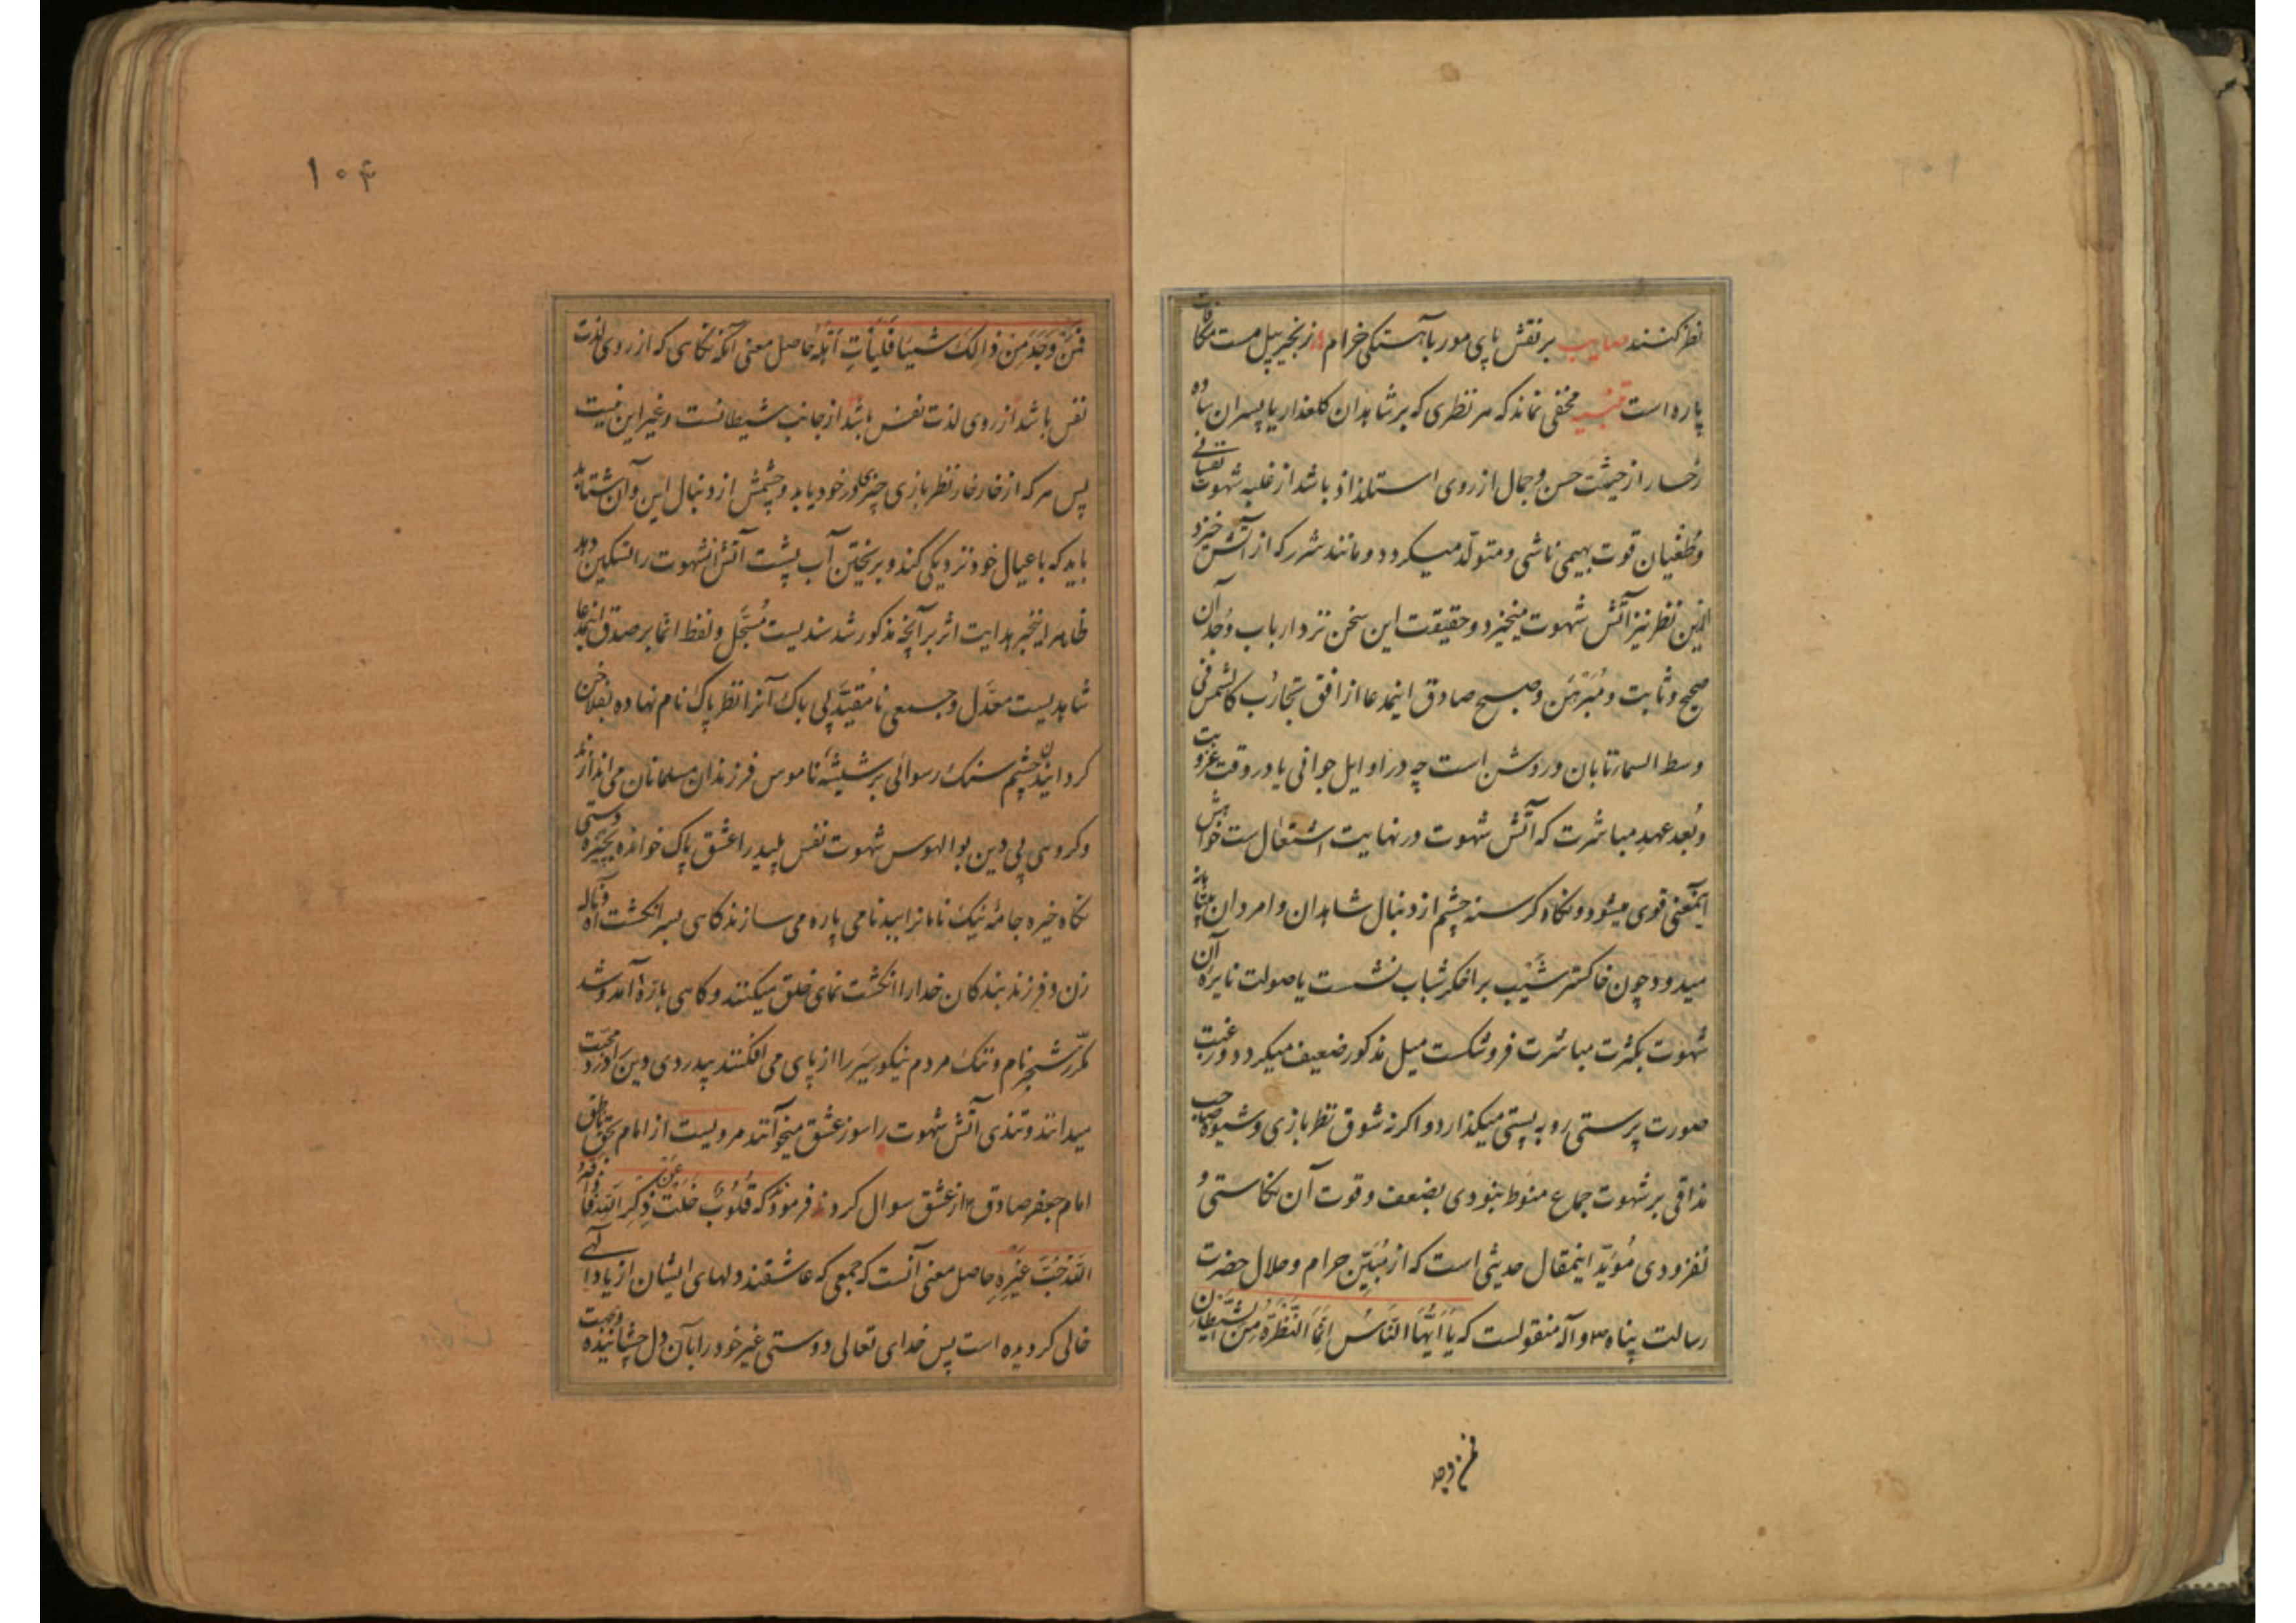 نظر کنند صایب بر نقش پای مور بآهستگی خرام زنجیر پیل مست مکافات
پاره است تنبیه مخفی نماند که هر نظری که بر شاهدان کلعذار یا پسران ساده
رخسار از حیثیت حسن و جمال از روی استلذاذ باشد از غلبه شهوت نفسانی
و طغیان قوت بهیمی ناشی و متولد میکردد و مانند شرر که از آتش خیزد
ازین نظر نیز آتش شهوت میخیزد و حقیقت این سخن نزد ارباب وجدان
صحیح و ثابت و مبرهن و صبح صادق اینمدعا از افق تجارب کالشمس فی
وسط السماء تابان و روشن است چه در اوایل جوانی یا در وقت عزوبت
و بُعد عهد مباشرت که آتش شهوت در نهایت اشتعال است خواهش
اینمعنی قوی میشود و نکاه کرسنه چشم از دنبال شاهدان و امردان بیتابانه
میدود چون خاکستر شیب بر اخکر شباب نشست یا صولت نایره آن
شهوت بکثرت مباشرت فرو شکست میل مذکور ضعیف میکردد و رغبت
صورت پرستی رو به پستی میکذارد و اکر نه شوق نظر بازی و شیوه صاحب
مذاقی بر شهوت جماع منوط بنودی بضعف و قوت آن نکاستی و
نفزودی مُؤیّد اینمقال حدیثی است که از مُبیّن حرام و حلال حضرت
رسالت پناه ص و آله منقولست که یا اَیُّهَا النَّاسُ اِنَّمَا النَّظْرَةُ مِنَ الشَّیطَانِ
فمن وجد
۱۰۴
فَمَنْ وَجَدَ مِنْ ذالِکَ شَیئاً فَلْیَأتِ اَهْلَهُ حاصل معنی آنکه نکاهی که از روی لذت
نفس باشد از روی لذت نفس باشد از جانب شیطانست و غیر این نیست
پس هر که از خارخار نظر بازی چیزی در خود یابد و چشمش از دنبال این و آن شتابد
باید که با عیال خود نزدیکی کند و بریختن آب پشت آتش شهوت را تسکین دهد
ظاهر اینخبر هدایت اثر بر آنچه مذکور شد سندیست مُسَجَّل و لفظ انما بر صدق اینمدعا
شاهدیست معدّل و جمعی نامقیّد بی باک آنرا نظر پاک نام نهاده بفلاخن
کردانیدن چشم سنک رسوائی بر شیشه ناموس فرزندان مسلمانان می اندازند
و کروهی بی دین بوالهوس شهوت نفس پلید را عشق پاک خوانده بچیره دستی
نکاه خیره جامهٔ نیک نامانرا ببدنامی پاره می سازند کاهی بسر انکشت آه و ناله
زن و فرزند بندکان خدا را انکشت نمای خلق میکنند و کاهی باره آمد و شد
مکرّر شجر نام و ننک مردم نیکو سیر را از پای می افکنند بیدردی دین را درد محبت
میدانند و تندی آتش شهوت را سوز عشق میخوانند مرویست از امام بحق ناطق
امام جعفر صادق ع از عشق سوال کردند فرمود که قُلُوبٌ خَلَتْ عَنْ ذِکْرِ اللهِ فَأذاقَهُ
اللهُ حُبَّ غَیْرِهِ حاصل معنی آنست که جمعی که عاشقند دلهای ایشان از یاد الهی
خالی کردیده است پس خدای تعالی دوستی غیر خود را بآن دل چشانیده